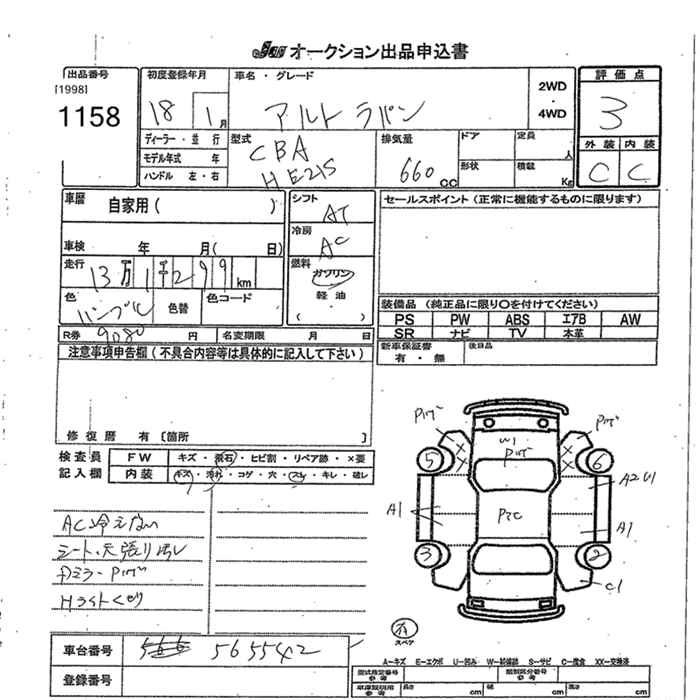 JU オークション出品申込書
出品番号
[1998]
1158
初度登録年月
18 1月
車名・グレード
アルト ラパン
2WD
・
4WD
評価点
3
外装 内装
C C
ディーラー・並行
モデル年式 年
ハンドル 左・右
型式
CBA
HE21S
排気量
660cc
ドア
定員 人
形状
積載 Kg
車歴
自家用( )
車検 年 月( 日)
走行
13万1千299km
色
色替
色コード
シフト
AT
冷房
AC
燃料
ガソリン
軽油
( )
セールスポイント(正常に機能するものに限ります)
装備品 (純正品に限り○を付けてください)
PS PW ABS エアB AW
SR ナビ TV 本革
新車保証書
有・無
後日品
R券 9080円
名変期限 月 日
注意事項申告欄(不具合内容等は具体的に記入して下さい)
修復歴 有 〔箇所 〕
検査員
記入欄
FW キズ・飛石・ヒビ割・リペア跡・×要
内装 キズ・汚れ・コゲ・穴・スレ・キレ・破レ
AC冷えない
シート・天張り汚レ
Hライトくもり
Pサビ
W1
Pサビ
Pサビ
5
6
A2 U1
A1
PてC
A1
3
2
C1
有
スペア
A-キズ E-エクボ U-凹み W-鈑補跡 S-サビ C-腐食 XX-交換済
車台番号
565542
登録番号
型式指定番号
参考
類別区分番号
参考
車庫証明用
参考
長さ cm
幅 cm
高さ cm